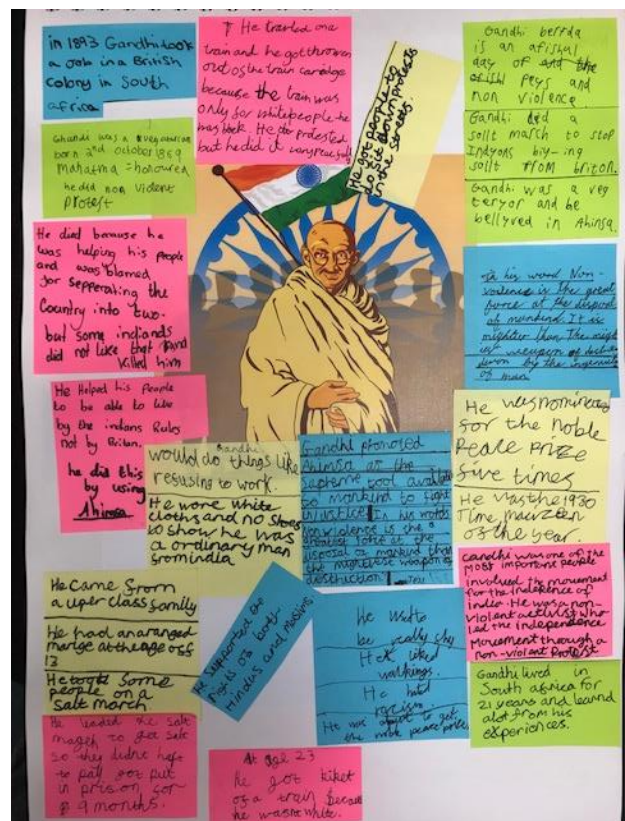 in 1893 Gandhi took
a job in a British
colony in South
africa
He travled on a
train and he got thrown
out os the train carriage
because the train was
only for white people he
was back. He protested
but he did it very peacefully
He got people to
do sit down protests
in the streets.
Gandhi berfda
is an afishal
day of and the
ofishl peys and
non violence
Gandhi led a
sollt march to stop
Indyons biy-ing
sollt from briton.
Gandhi was a veg
teryor and he
bellyved in Ahinsa.
Ghandi was a vegatarian
born 2nd October 1869
Mahatma = honoured
he did non violent
protest
He died because he
was helping his people
and was blamed
for sepperating the
Country into two.
but some indiands
did not like that and
killed him
In his word Non-
violence is the great
force at the disposal
of mankind. It is
mightier than the might
weapon of
down by the ingenuity
of man
He Helped his People
to be able to live
by the indians Rules
not by Britan.
he did this
by using
Ahinsa
Gandhi
would do things like
resusing to work.
He wore white
cloths and no shoes
to show he was
a ordinary man
from india
Gandhi promoted
Ahimsa as the
Supreme tool available
to mankind to fight
injustice In his words
non violence is the
greatest force at the
disposal of mankind than
the mightiest weapon of
destruction
He was nominated
for the noble
Peace Prize
five times
He was the 1930
Time
os the year.
Gandhi was one of the
most importent people
involved the movement
for the indepence of
india. He was a non-
violent activist who
led the independence
Movement through a
non-violent Protest
He came from
a uper class family
He had an aranged
marige at the age off
13
He took some
people on a
salt march.
He supported the
rights of both
Hindus and muslims
He used to
be really shy
He liked
walkings.
He hated
racism.
He was to get
the noble peace prize
Gandhi lived in
South africa for
21 years and learnd
alot from his
experiences.
He leaded the salt
march to get salt
so they didnt haft
to pay got put
in prison for
9 months.
At age 23
he got kiket
of a train because
he wasnt white.